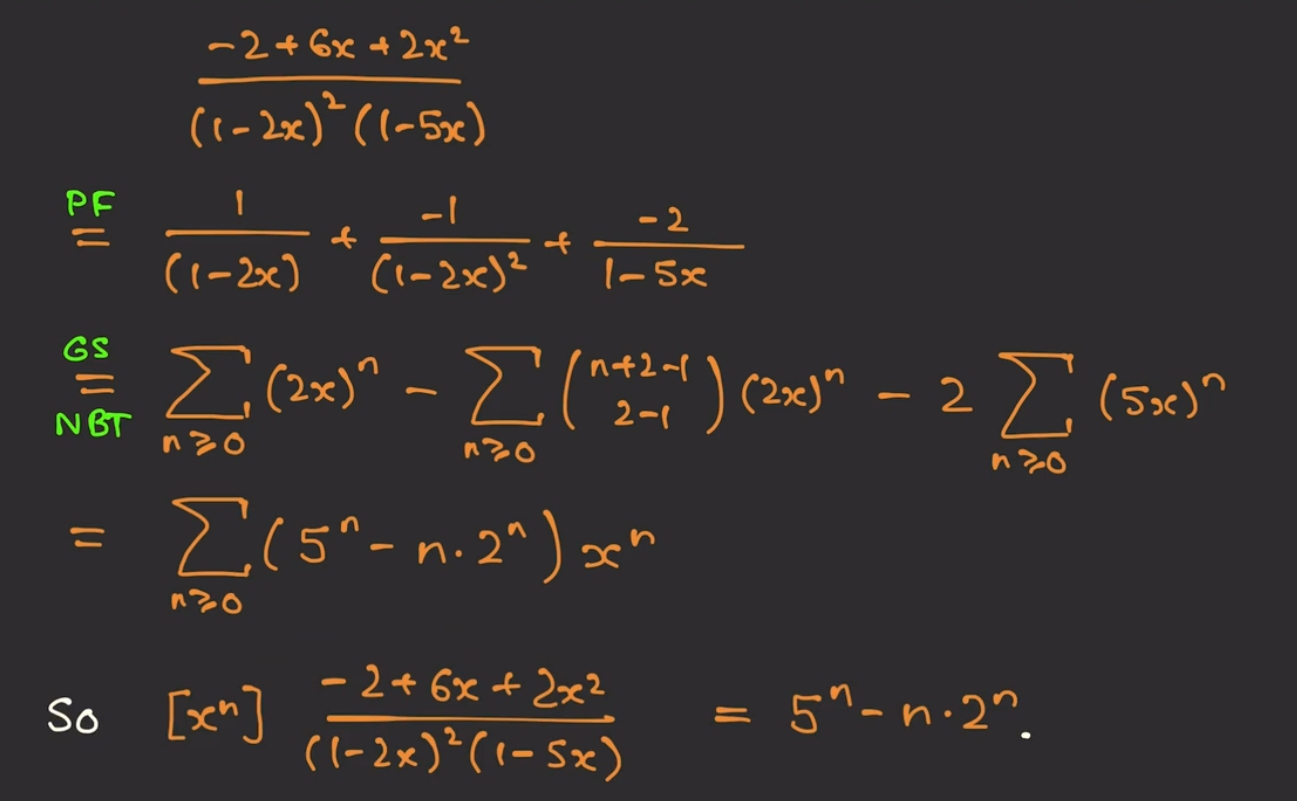 -2+6x+2x²
(1-2x)²(1-5x)
PF = 1/(1-2x) + -1/(1-2x)² + -2/1-5x
GS = NBT ∑ n≥0 (2x)ⁿ - ∑ n≥0 (n+2-1 2-1) (2x)ⁿ - 2 ∑ n≥0 (5x)ⁿ
= ∑ n≥0 (5ⁿ - n·2ⁿ) xⁿ
So [xⁿ] -2+6x+2x²/(1-2x)²(1-5x) = 5ⁿ-n·2ⁿ.